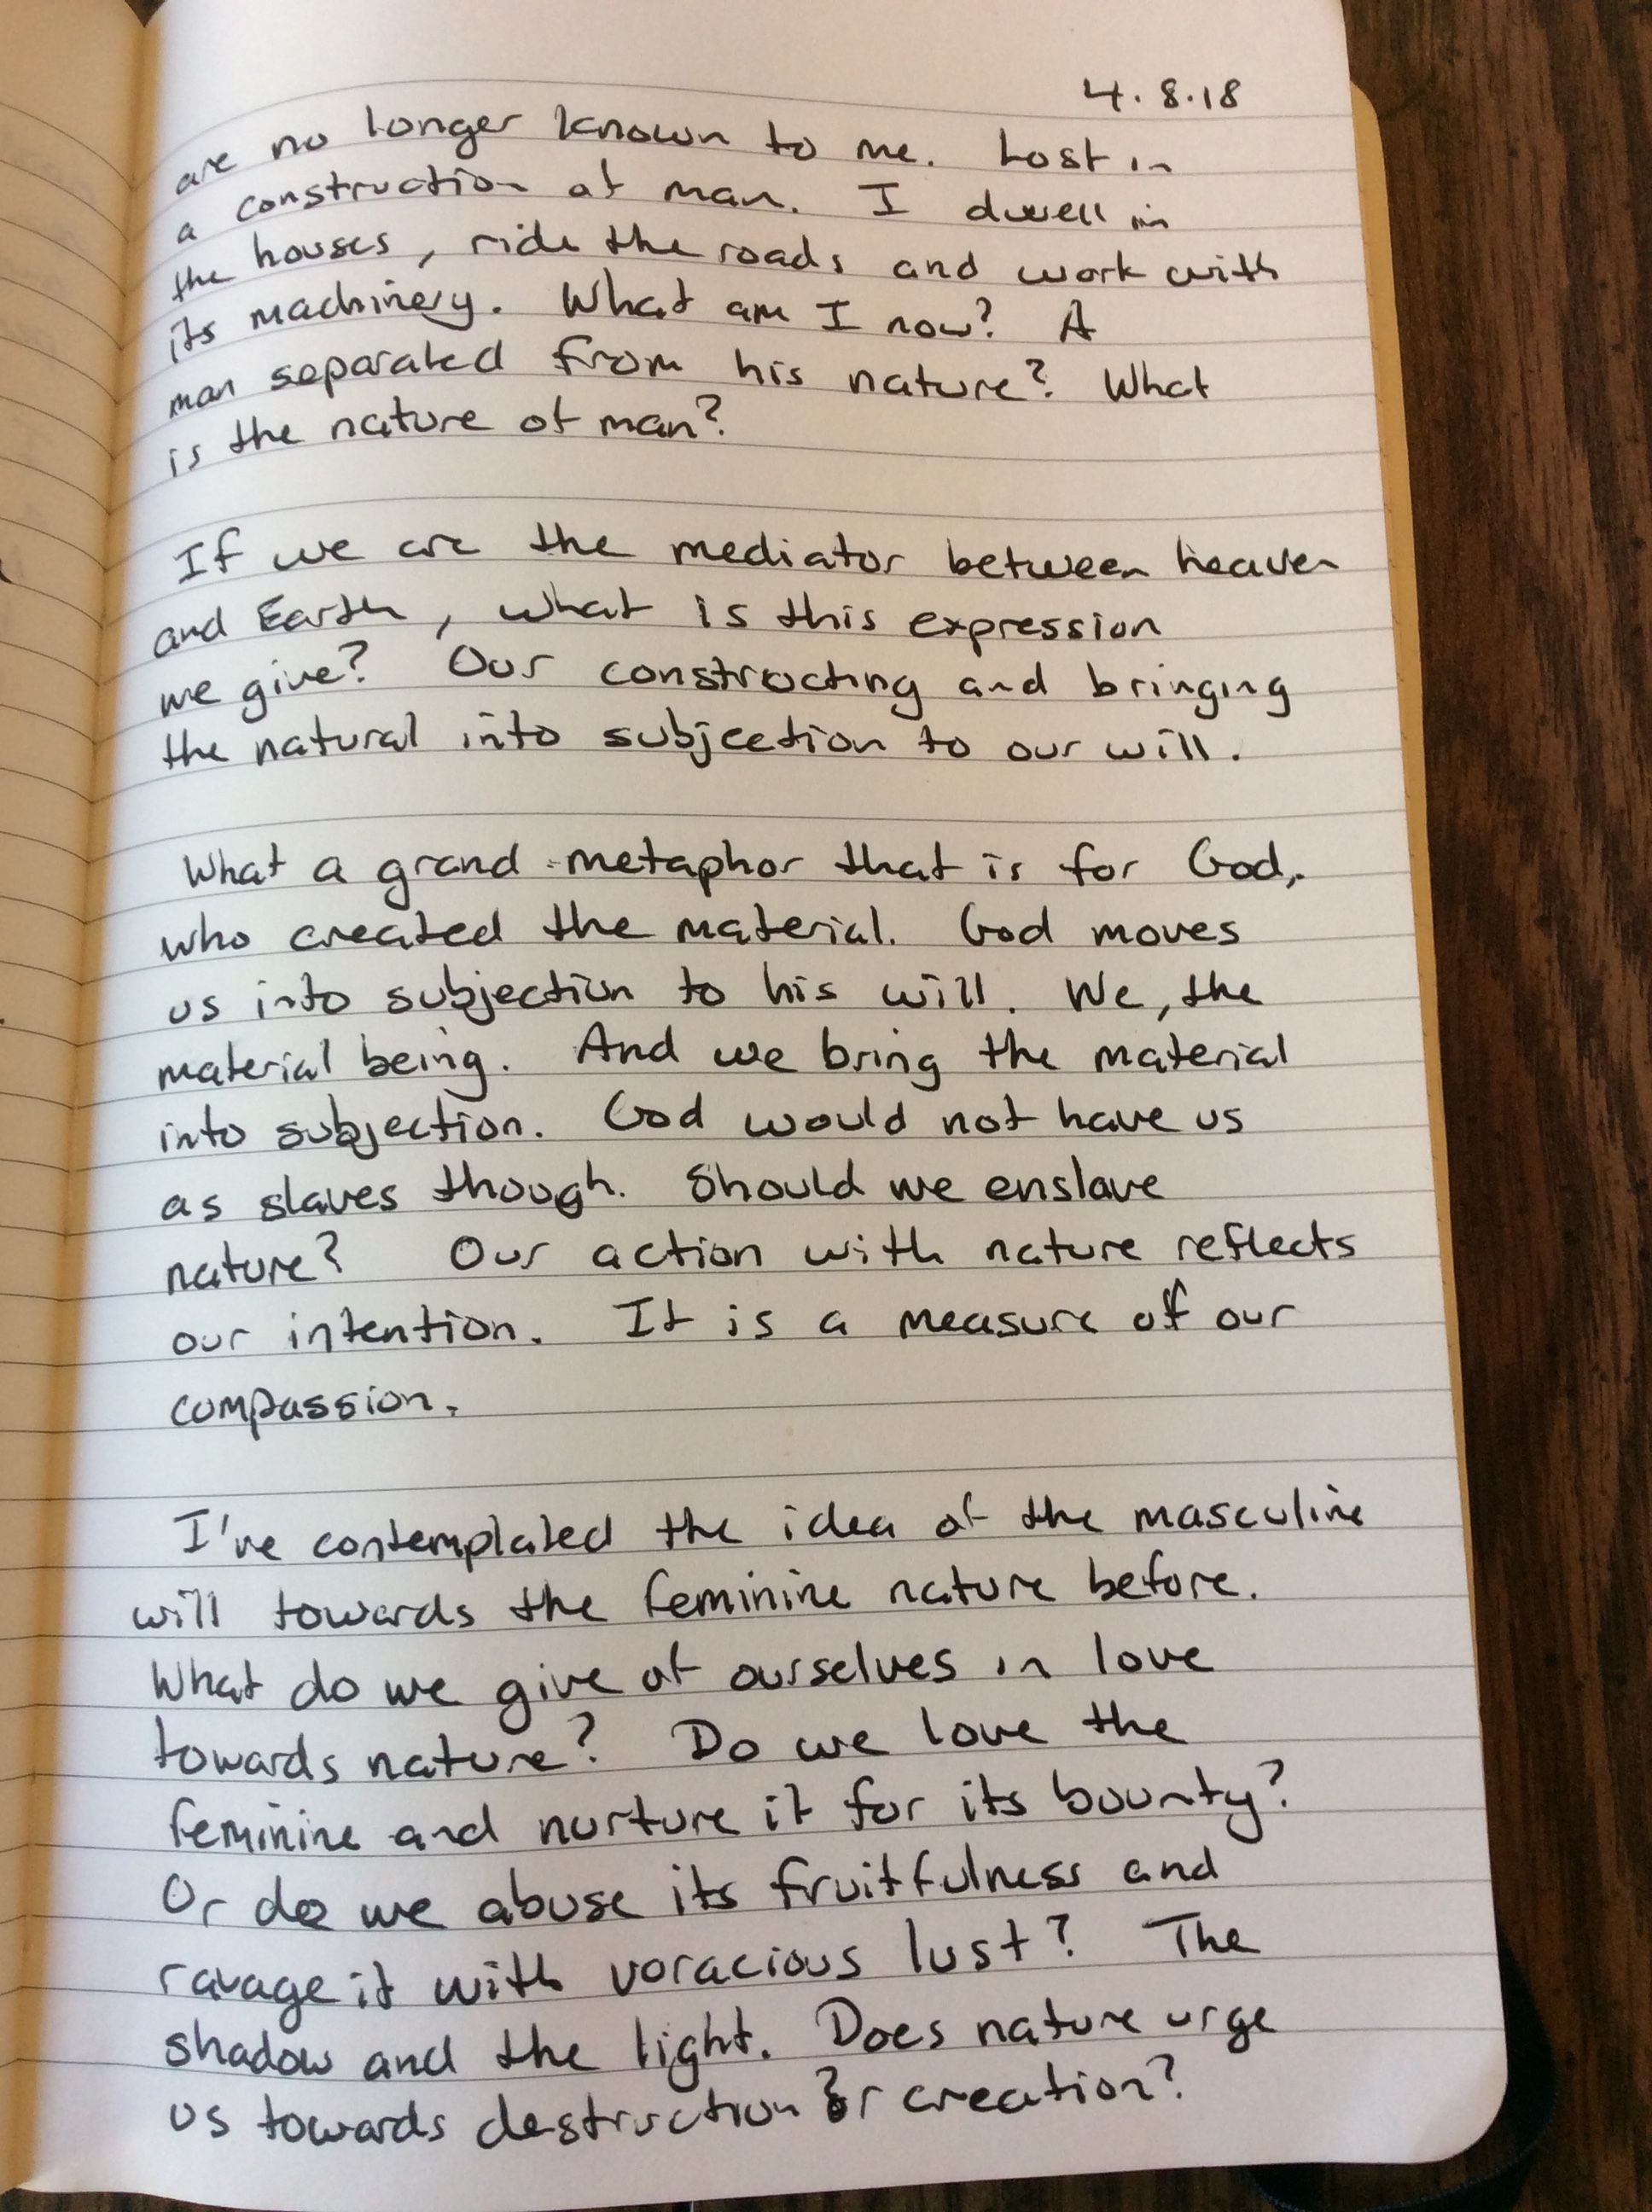 4.8.18
are no longer known to me. Lost in
a construction of man. I dwell in
the houses, ride the roads and work with
its machinery. What am I now? A
man separated from his nature? What
is the nature of man?
If we are the mediator between heaven
and Earth, what is this expression
we give? Our constructing and bringing
the natural into subjection to our will.
What a grand metaphor that is for God,
who created the material. God moves
us into subjection to his will. We, the
material being. And we bring the material
into subjection. God would not have us
as slaves though. Should we enslave
nature? Our action with nature reflects
our intention. It is a measure of our
compassion.
I've contemplated the idea of the masculine
will towards the feminine nature before.
What do we give of ourselves in love
towards nature? Do we love the
feminine and nurture it for its bounty?
Or do we abuse its fruitfulness and
ravage it with voracious lust? The
shadow and the light. Does nature urge
us towards destruction or creation?